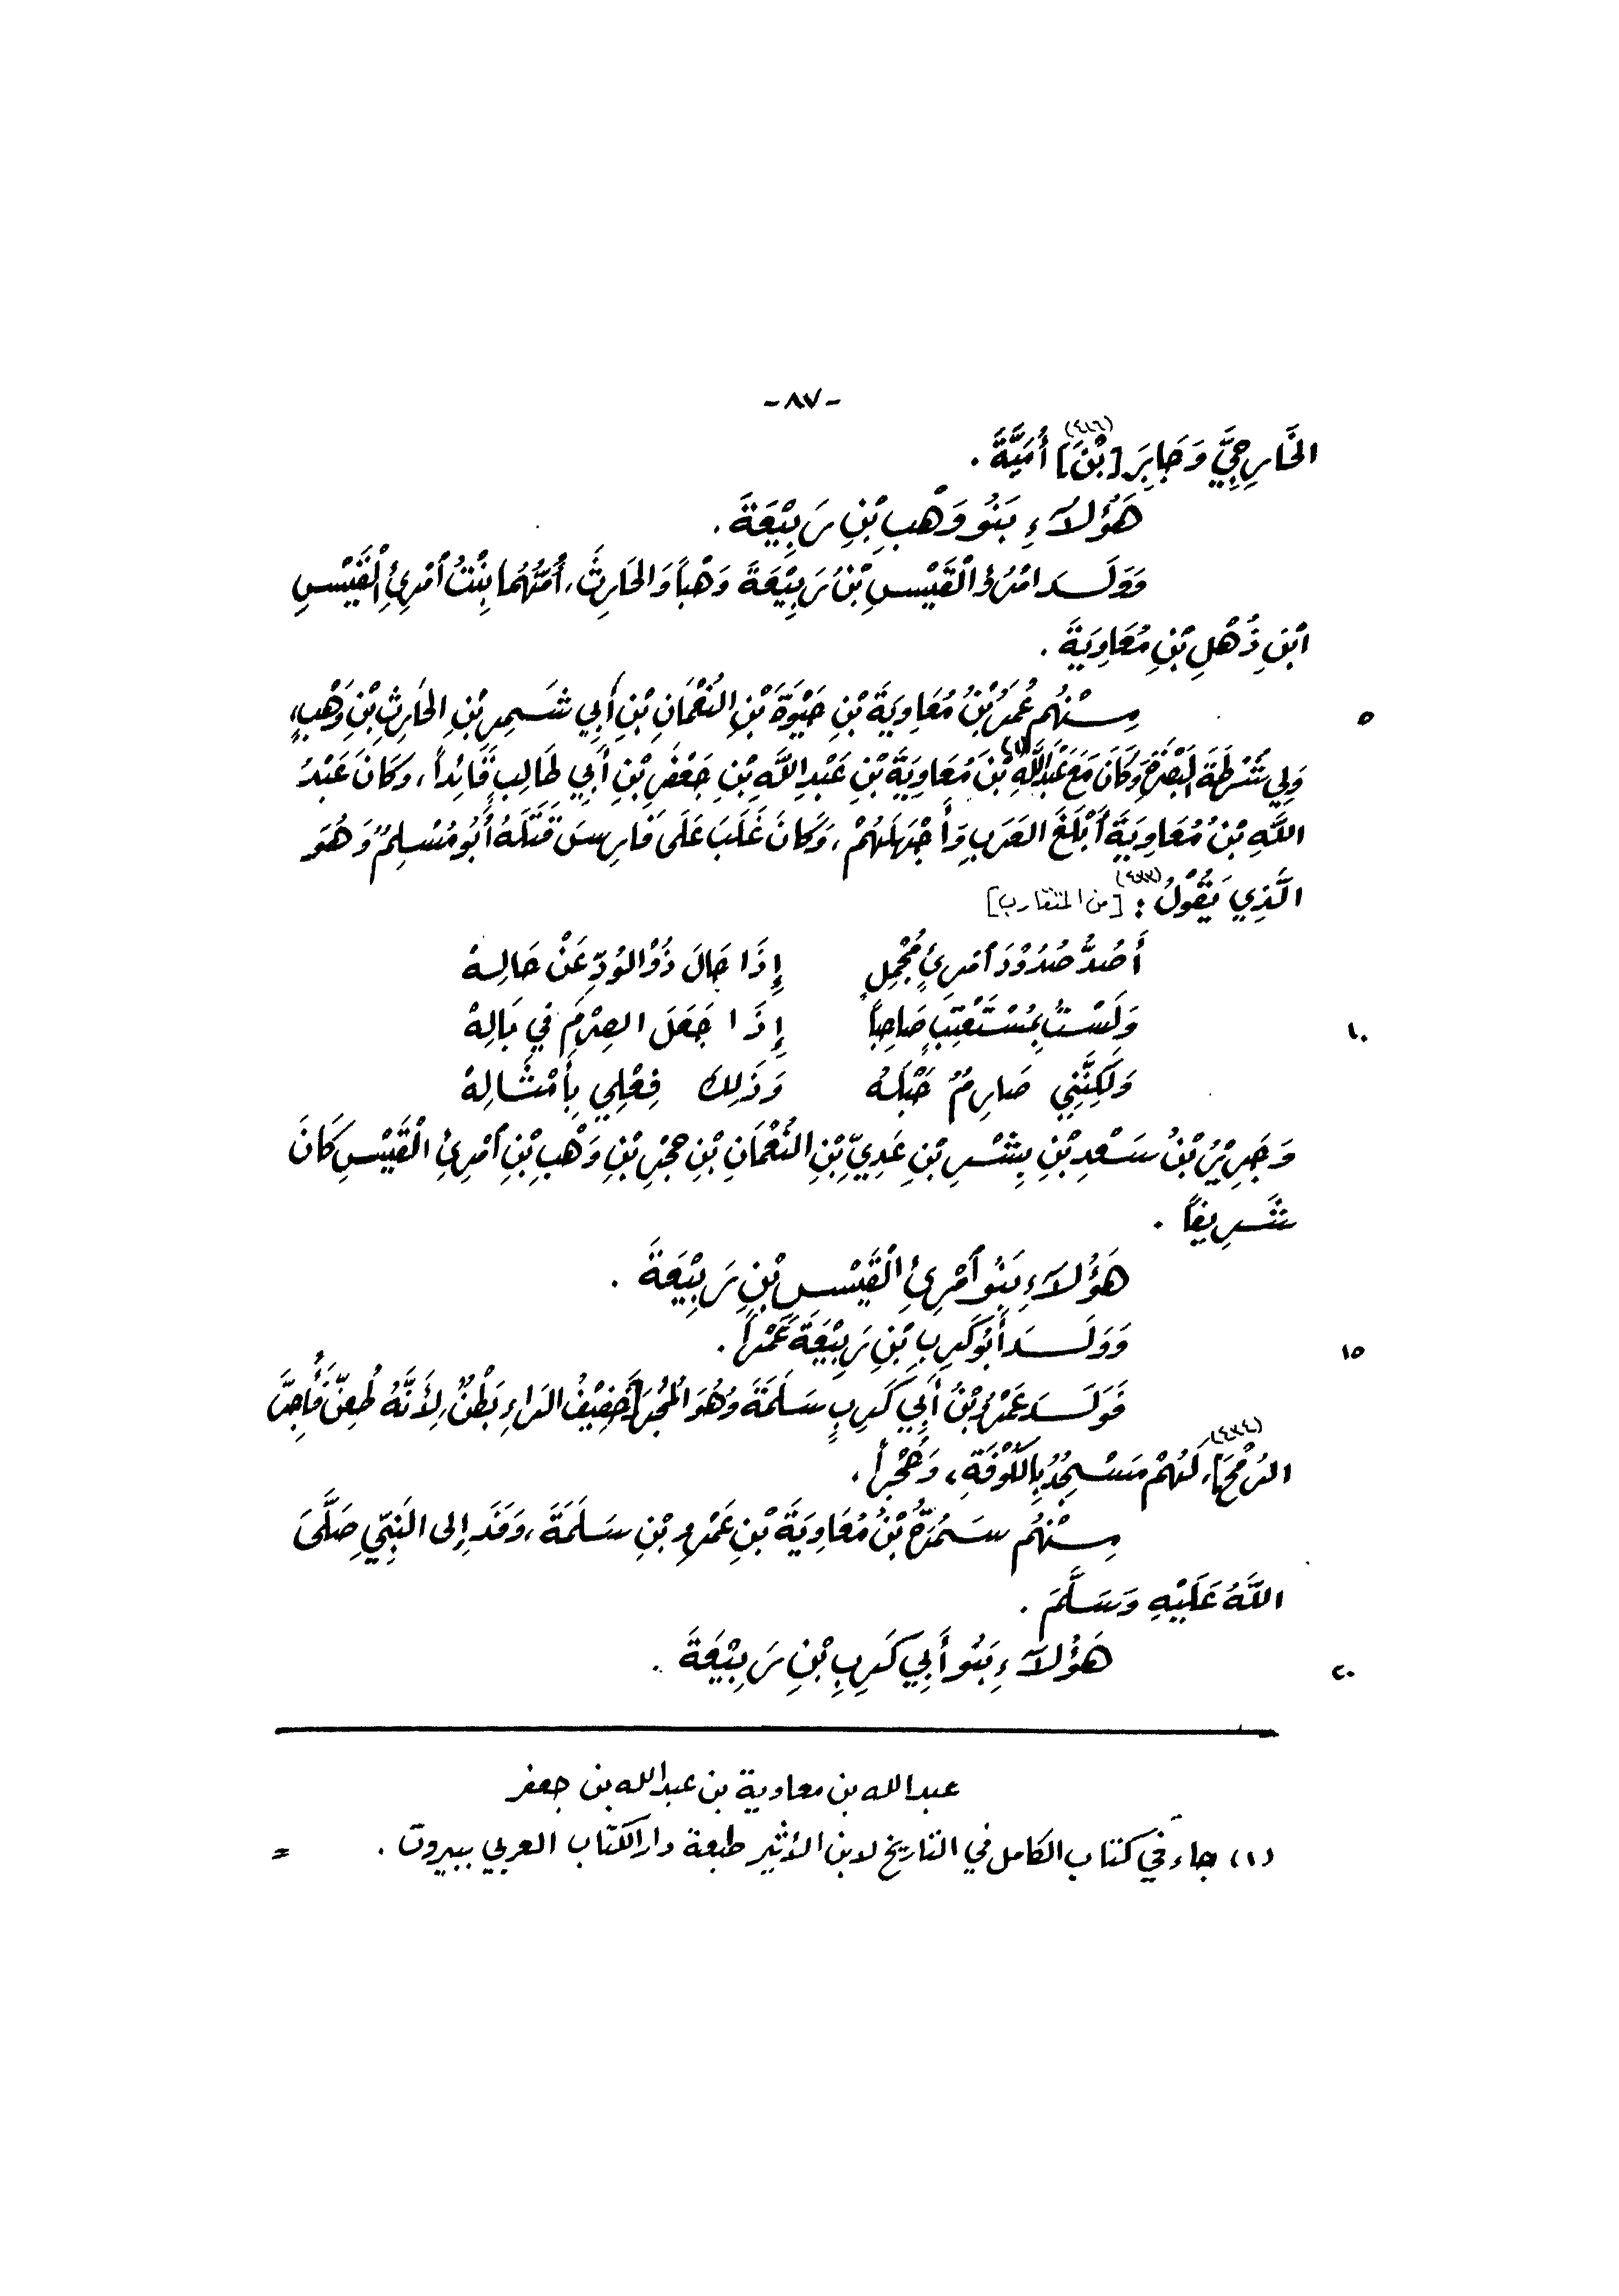 -٨٧-
الخَارِجِيَّ وَجَابِرَ [بْنَ](٤١٦) أُمَيَّةَ .
هَؤُلَاءِ بَنُو وَهْبِ بْنِ رَبِيْعَةَ .
وَوَلَدَ امْرُؤُ ٱلْقَيْسِ بْنُ رَبِيْعَةَ وَهْبَاً وَالحَارِثَ، أُمُّهُمَا بِنْتُ ٱمْرِئِ ٱلْقَيْسِ
ابْنِ ذُهْلِ بْنِ مُعَاوِيَةَ .
مِنْهُم عُمَرُ بْنُ مُعَاوِيَةَ بْنِ حَيْوَةَ بْنِ النُّعْمَانِ بْنِ أَبِي شَمِرِ بْنِ الحَارِثِ بْنِ وَهْبٍ، ٥
وَلِي شُرْطَةَ البَصْرَةِ وَكَانَ مَعَ عَبْدِ اللَّهِ(١) بْنِ مُعَاوِيَةَ بْنِ عَبْدِ اللَّهِ بْنِ جَعْفَرِ بْنِ أَبِي طَالِبٍ قَائِداً، وَكَانَ عَبْدُ
اللَّهِ بْنُ مُعَاوِيَةَ أَبْلَغَ العَرَبِ وَأَجْهَلَهُمْ، وَكَانَ غَلَبَ عَلَى فَارِسَ قَتَلَهُ أَبُو مُسْلِمٍ وَهُوَ
الَّذِي يَقُوْلُ(٤٢٣) : [من المتقارب]
أَصُدُّ صُدُوْدَ ٱمْرِئٍ مُجْمِلٍ إِذَا حَالَ ذُوْ الوُدِّ عَنْ حَالِهْ
وَلَسْتُ بِمُسْتَعْتِبٍ صَاحِبَاً إِذَا جَعَلَ الصِّرْمَ فِي بَالِهْ ١٠
وَلَكِنَّنِي صَارِمٌ حَبْلَهُ وَذَلِكَ فِعْلِي بِأَمْثَالِهْ
وَجَرِيْرُ بْنُ سَعْدِ بْنِ بِشْرِ بْنِ عَدِيِّ بْنِ النُّعْمَانِ بْنِ حُجْرِ بْنِ وَهْبِ بْنِ ٱمْرِئِ الْقَيْسِ كَانَ
شَرِيفَاً .
هَؤُلَاءِ بَنُو ٱمْرِئِ ٱلْقَيْسِ بْنِ رَبِيْعَةَ .
وَوَلَدَ أَبُو كَرِبِ بْنِ رَبِيْعَةَ عَمْرَاً . ١٥
فَوَلَدَ عَمْرُو بْنُ أَبِي كَرِبٍ سَلَمَةَ وَهُوَ المُجِرُ [خَفِيْفُ الرَاءِ بَطْنٌ، لِأَنَّهُ طُعِنَ فَأُجِرَّ
الرُمْحَ](٤٢٤)، لَهُمْ مَسْجِدٌ بِالكُوْفَةِ، وَحُجْراً .
مِنْهُم سَمُرَةُ بْنُ مُعَاوِيَةَ بْنِ عَمْرِو بْنِ سَلَمَةَ، وَفَدَ إِلى النَبِيِّ صَلَّى
اللَّهُ عَلَيْهِ وَسَلَّمَ .
هَؤُلَاءِ بَنُو أَبِي كَرِبِ بْنِ رَبِيْعَةَ . ٢٠
عبدالله بن معاوية بن عبدالله بن جعفر
(١) جاء في كتاب الكامل في التاريخ لابن الأثير طبعة دار الكتاب العربي ببيروت . =